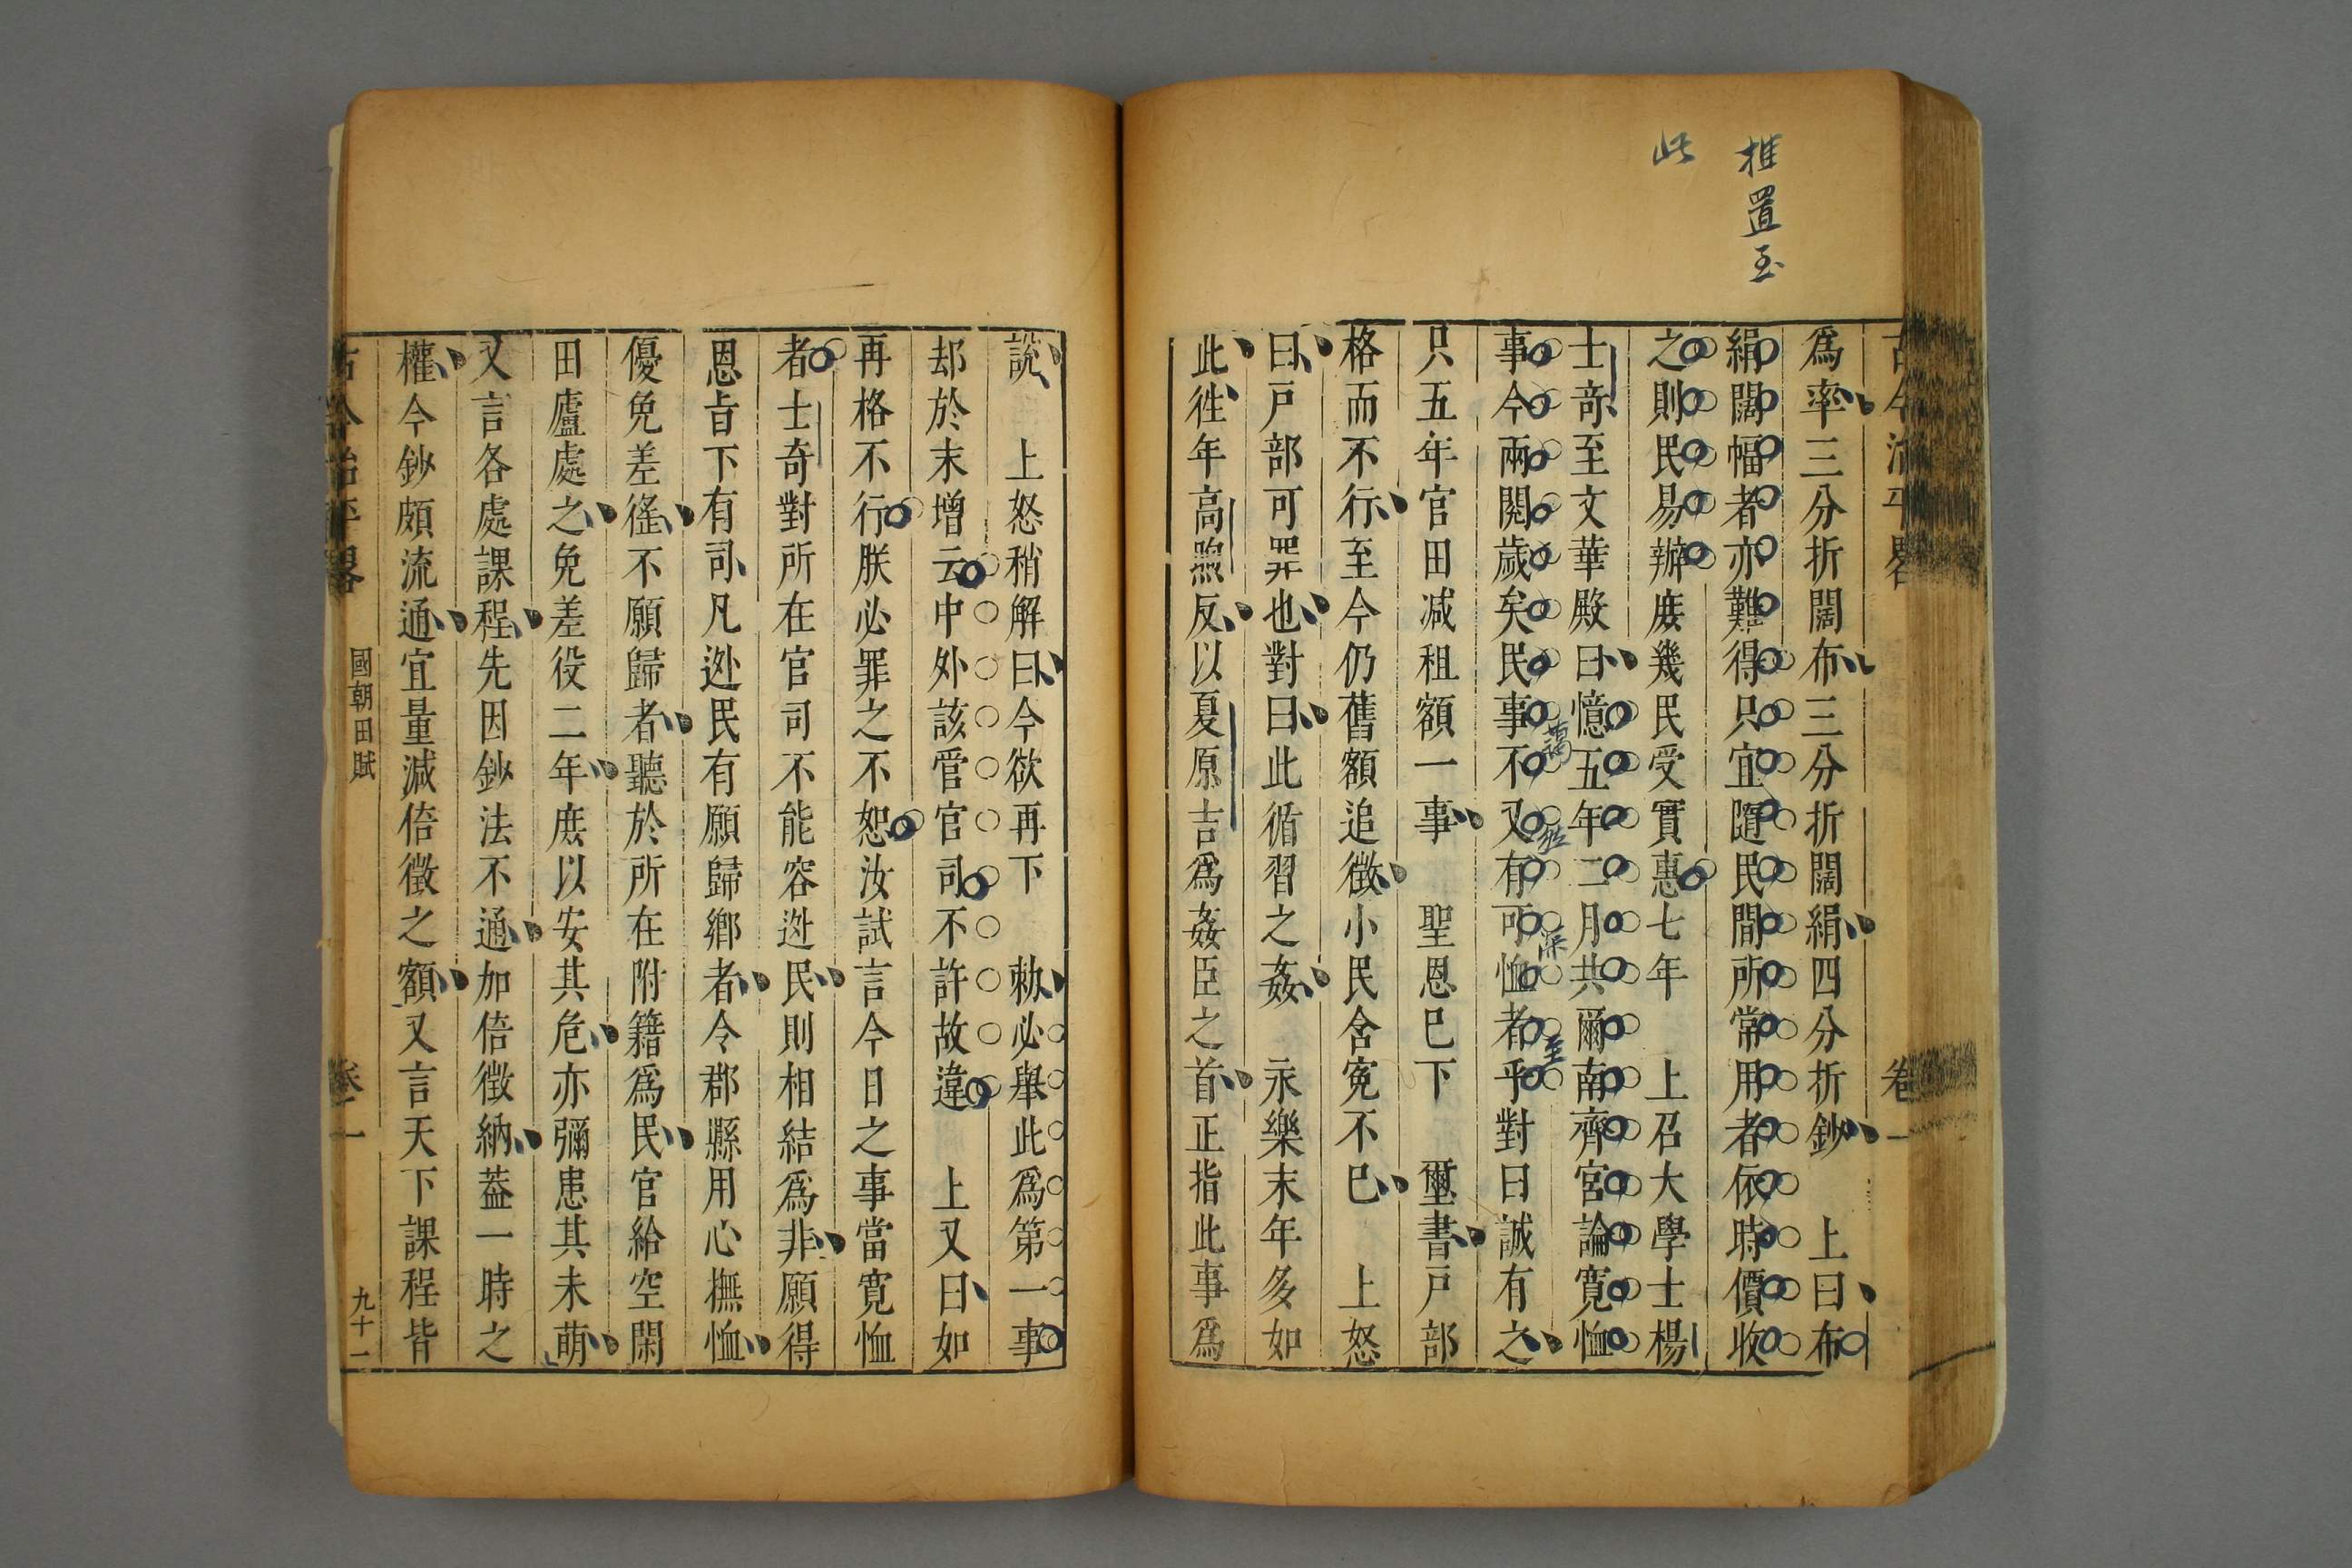 推置至
此
爲率三分折闊布三分折闊絹四分折鈔 上曰布
絹闊幅者亦難得只宜隨民間所常用者依時價收
之則民易辦庶幾民受實惠七年 上召大學士楊
士奇至文華殿曰憶五年二月共爾南齊宮論寬恤
事今兩閱歲矣民事不又有可恤者乎對曰誠有之
只五年官田减租額一事 聖恩巳下 璽書戸部
格而不行至今仍舊額追徵小民含寃不巳 上怒
曰戸部可罪也對曰此循習之姦 永樂末年多如
此徃年高煦反以夏原吉爲姦臣之首正指此事爲
說 上怒稍解曰今欲再下 勅必舉此爲第一事
却於末增云中外該管官司不許故違 上又曰如
再格不行朕必罪之不恕汝試言今日之事當寛恤
者士奇對所在官司不能容逃民則相結爲非願得
恩旨下有司凡逃民有願歸鄉者令郡縣用心撫恤
優免差徭不願歸者聽於所在附籍爲民官給空閑
田廬處之免差役二年庶以安其危亦彌患其未萌
又言各處課程先因鈔法不通加倍徵納葢一時之
權今鈔頗流通宜量減倍徵之額又言天下課程皆
古今治平畧 國朝田賦 卷一 九十二